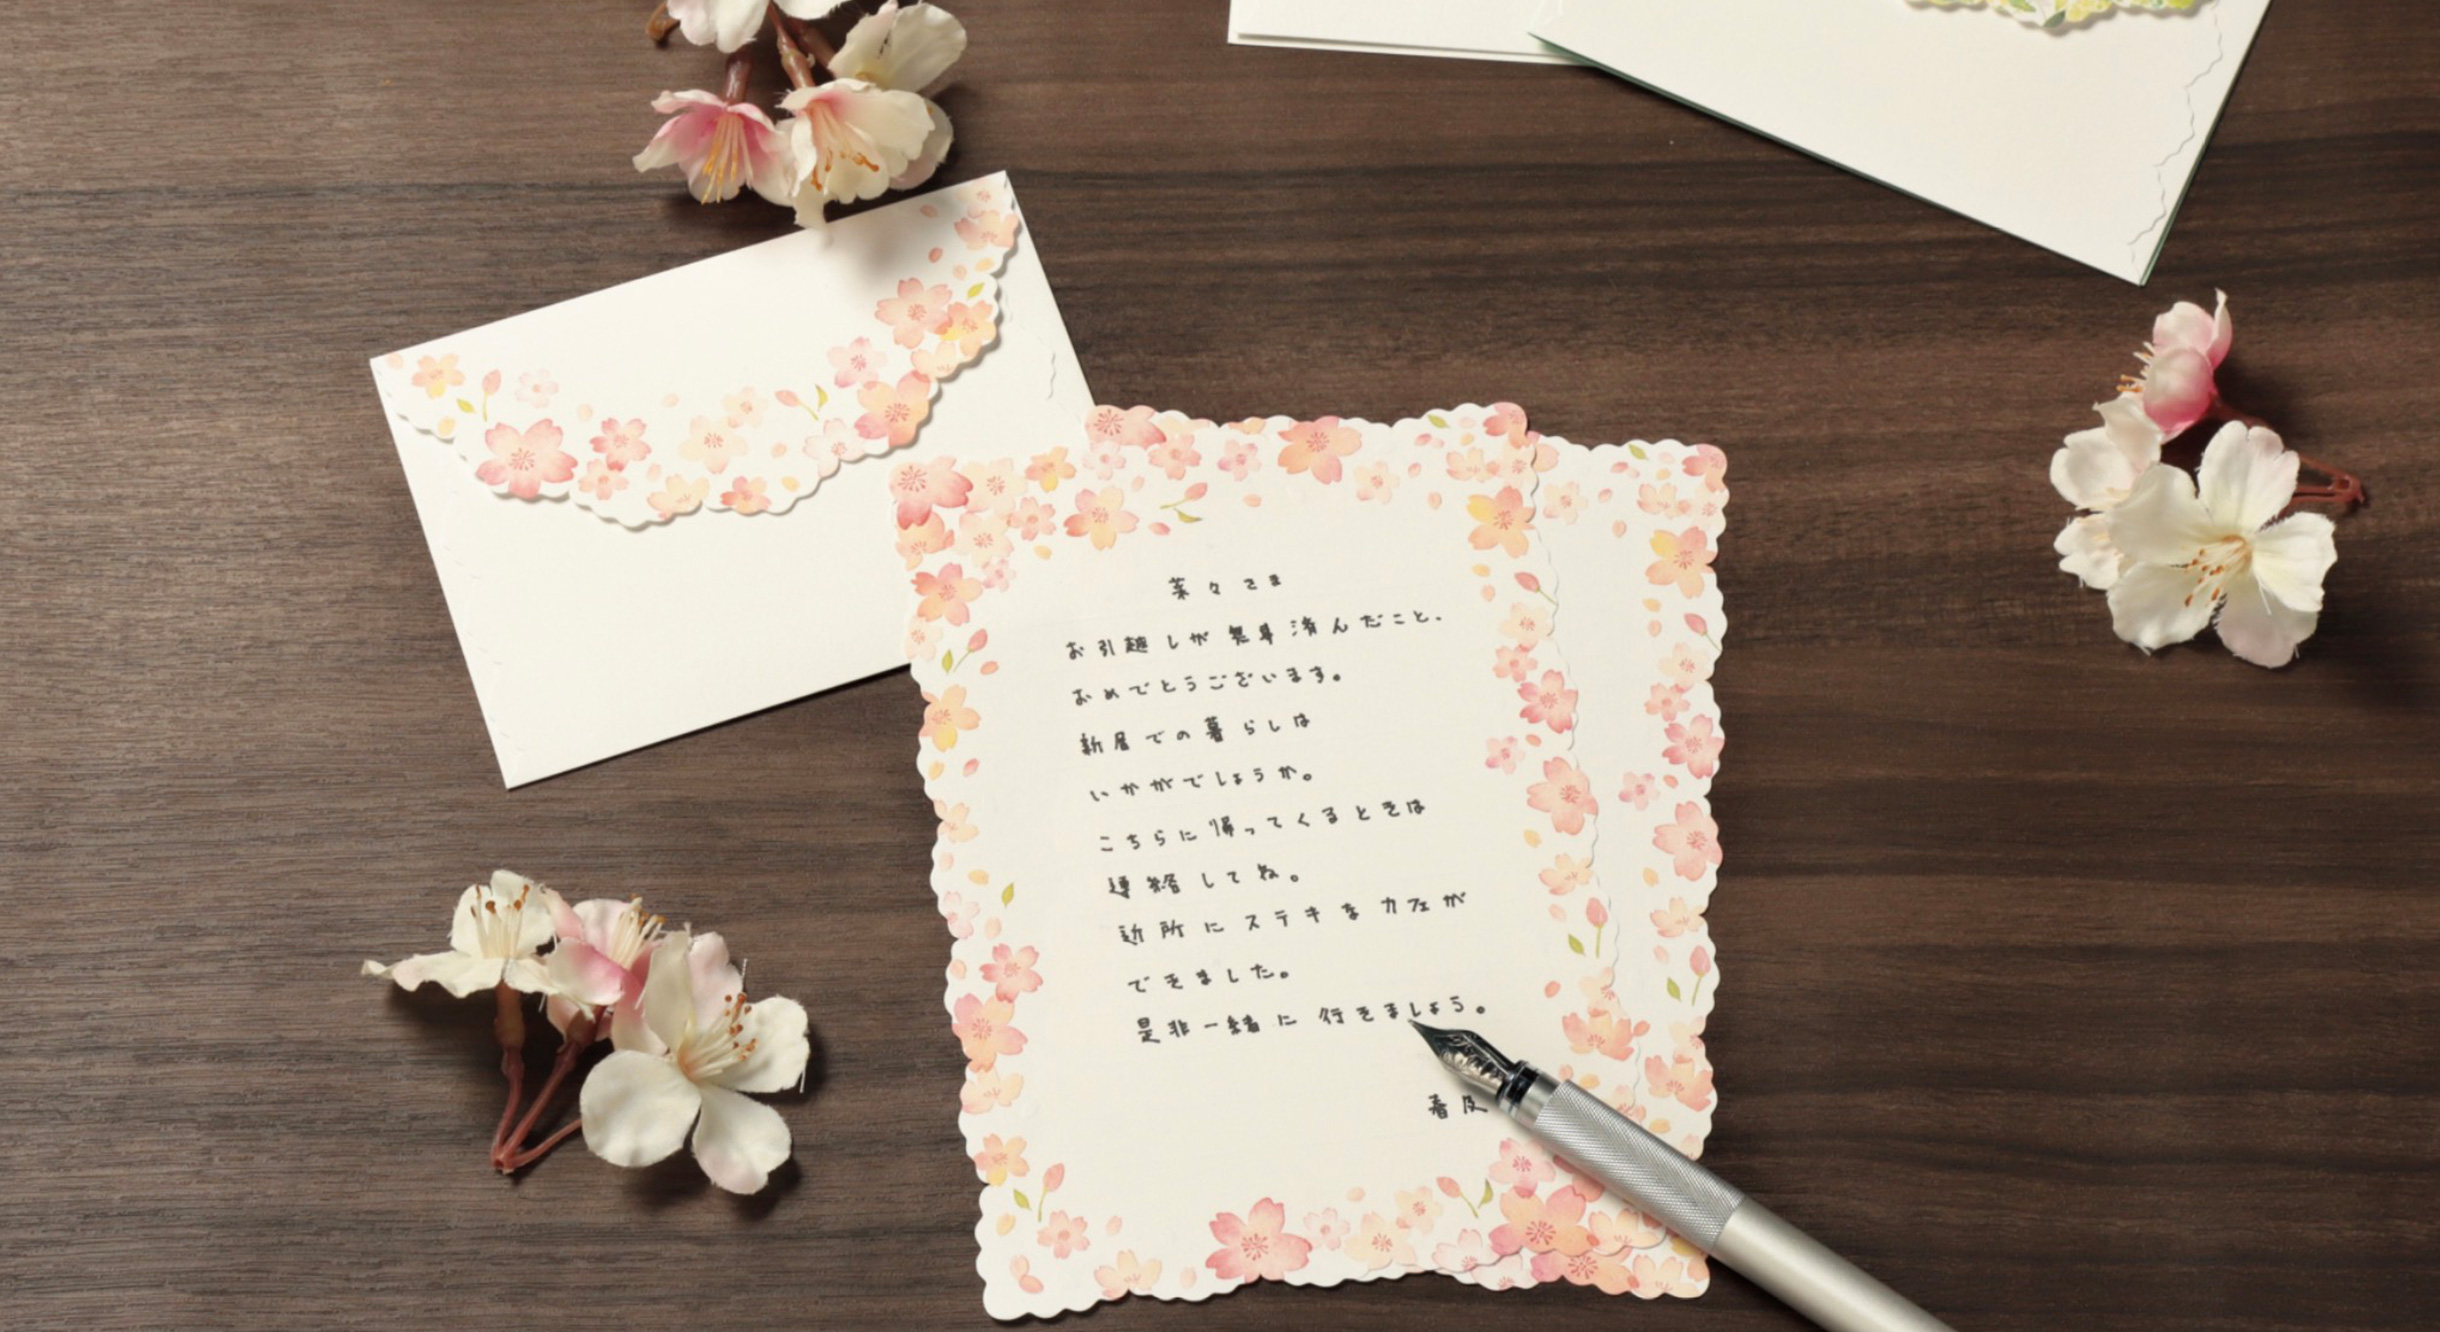 菜々さま
お引越しが無事済んだこと、
おめでとうございます。
新居での暮らしは
いかがでしょうか。
こちらに帰ってくるときは
連絡してね。
近所にステキなカフェが
できました。
是非一緒に行きましょう。
春